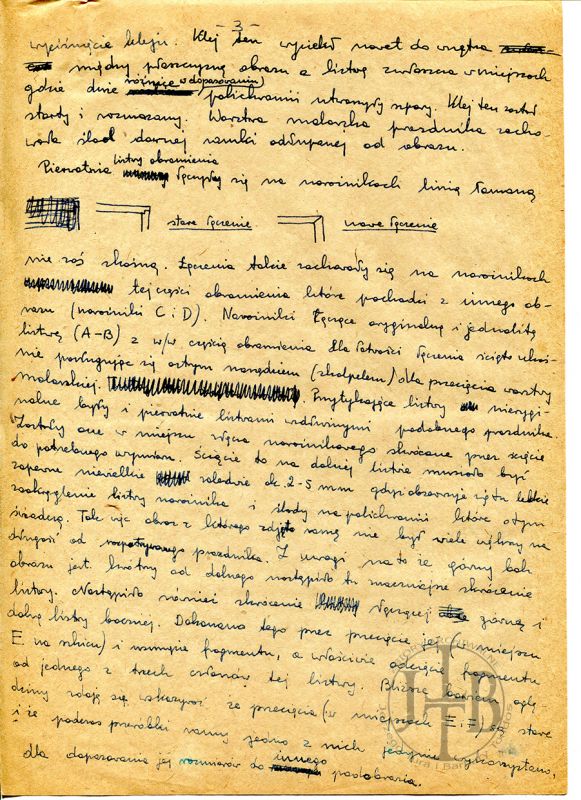 - 3 -
wyciśnięcie kleju. Klej ten wyciekł nawet do wnętrza
między płaszczyznę obrazu a listwę zwłaszcza w miejscach
gdzie dwie różniące w dopasowaniu polichromii utworzyły szpary. Klej ten został
starty i rozmazany. Warstwa malarska prazdnika zacho-
wała ślad dawnej ramki odłupanej od obrazu.
Pierwotnie listwy obramienia łączyły się na narożnikach linią łamaną
stare łączenie nowe łączenie
nie zaś skośną. Łączenia takie zachowały się na narożnikach
tej części obramienia które pochodzi z innego ob-
razu (narożniki C i D). Narożniki łączące oryginalną i jednolitą
listwę (A-B) z w/w częścią obramienia dla łatwości łączenia ścięto skoś-
nie posługując się ostrym narzędziem (skalpelem) dla przecięcia warstwy
malarskiej. Przytykające listwy nieorygi-
nalne były i pierwotnie listwami wzdłużnymi podobnego prazdnika.
Zostały one w miejscu złącza narożnikowego skrócone przez ścięcie
do potrzebnego wymiaru. Ścięcie to na dolnej listwie musiało być
zapewne niewielkie zaledwie ok 2-5 mm gdyż obserwuje się tu lekkie
zaokrąglenie listwy narożnika i ślady na polichromii które o tym
świadczą. Tak więc obraz z którego zdjęto ramę nie był wiele większy na
długość od rozpatrywanego prazdnika. Z uwagi na to że górny bok
obrazu jest krótszy od dolnego nastąpiło tu znaczniejsze skrócenie
listwy. Nastąpiło również skrócenie łączącej górną i
dolną listwy bocznej. Dokonano tego przez przecięcie jej (w miejscu
E na szkicu) i usunięcie fragmentu, a właściwie odcięcie fragmentu
od jednego z trzech członów tej listwy. Bliższe bowiem oglę-
dziny zdają się wskazywać że przecięcia (w miejscach E i F) są stare
i że podczas przeróbki ramy jedno z nich jedynie wykorzystano,
dla dopasowania jej rozmiarów do innego podobrazia.